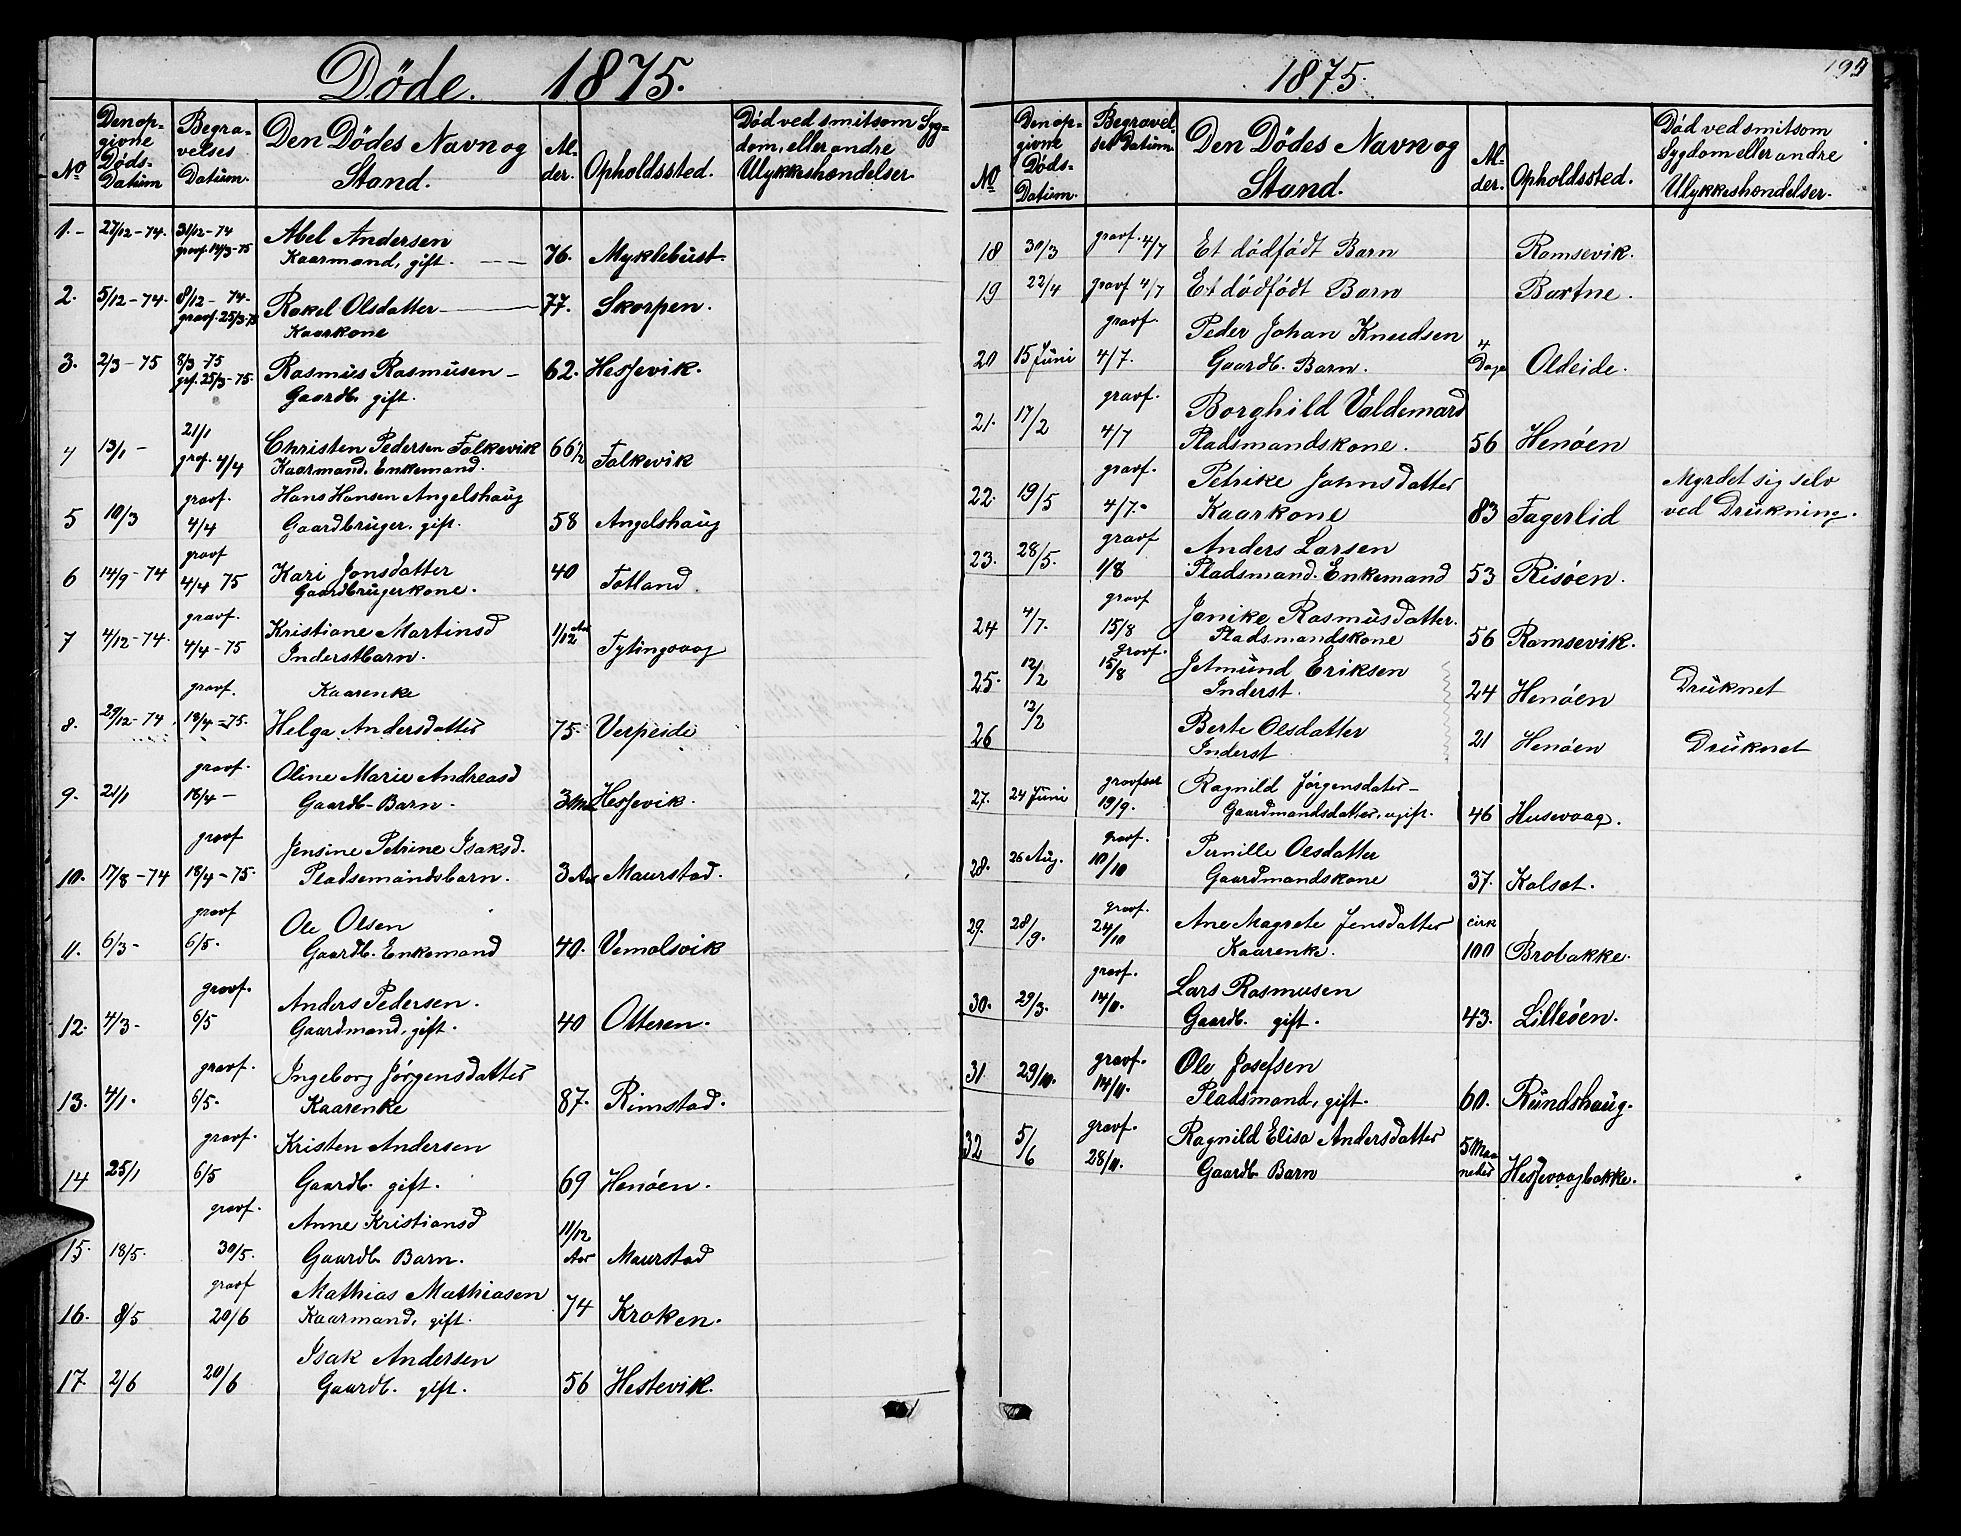 Döde. 1875.
No
Den op-
givne
Døds-
Datum
Begra-
velses
Datum.
Den Dödes Navn og
Stand.
Al-
der.
Opholdssted.
Død ved smitsom Syg-
dom, eller andre
Ulykkeshændelser.
1.- 27/12-74. 31/12-74 Abel Andersen
gravf. 14/3-75 Kaarmand, gift. 76. Myklebust.
2. 5/12-74. 8/12-74. Rakel Olsdatter 77. Skorpen.
gravf. 25/3-75 Kaarkone
3. 2/3-75 8/3-75 Rasmus Rasmusen- 62. Hessevik.
grf. 25/3-75. Gaardb. gift.
4 13/1- 21/1 Christen Pedersen Falkevik 66½ Falkevik
graf. 4/4 Kaarmand. Enkemand.
gravf. Hans Hansen Angelshaug
5 10/3 4/4 Gaardbruger. gift. 58 Angelshaug
gravf
6 14/9-74 4/4 75 Kari Jonsdatter 40 Totland
Gaardbrugerkone.
gravf.
7 4/12-74. 4/4-75 Kristiane Martinsd 1/12 Aar Tytingvaag
Inderstbarn.
gravf. Kaarenke
8. 29/12-74. 18/4-75. Helga Andersdatter 75. Verpeide
gravf. Oline Marie Andreasd
9. 21/1 18/4- Gaardb-Barn. 3 Mdr Hessevik.
gravf Jensine Petrine Isaksd.
10. 17/8-74 18/4-75. Pladsemandsbarn. 3 Aar Maurstad.
gravf Ole Olsen
11. 6/3- 6/5. Gaardb. Enkemand 40. Vemolsvik
gravf. Anders Pedersen.
12. 4/3- 6/5 Gaardmand, gift. 40 Otteren.
gravf. Ingeborg Jørgensdatter
13. 4/1. 6/5. Kaarenke 87. Rimstad.
gravf. Kristen Andersen
14 25/1 6/5 Gaardb. gift. 69 Henöen.
gravf. Anne Kristiansd 11/12
15. 18/5. 30/5. Gaardb. Barn. Aar Maurstad
gravf Mathias Mathiasen
16. 8/5 20/6 Kaarmand, gift. 74 Kroken.
Isak Andersen
17. 2/6 20/6 Gaardb. gift. 56 Hestevik.
1875.
No
Den op-
givne
Døds-
Datum.
Begravel-
ses Datum.
Den Dödes Navn og
Stand.
Al-
der.
Opholdssted.
Død ved smitsom
Sygdom eller andre
Ulykkeshændelser.
18 30/3 gravf. 4/7 Et dödfödt Barn Ramsevik.
19 22/4 gravf 4/7 Et dödfödt Barn Bortne.
gravf. Peder Johan Knudsen 4
20 15 Juni 4/7. Gaardb. Barn. Dage Oldeide.
gravf. Borghild Valdemard
21. 17/2 4/7 Pladsmandskone. 56 Henöen
gravf. Petrike Johnsdatter Myrdet sig selv
22. 19/5 4/7. Kaarkone 83 Fagerlid ved Drukning.
gravf Anders Larsen
23. 28/5. 1/8 Pladsmand. Enkemand 53 Risöen.
gravf Janike Rasmusdatter.
24 4/7. 15/8 Pladsmandskone 56 Ramsevik.
gravf.
25. 12/2 15/8 Jetmund Eriksen
Inderst. 24 Henöen Druknet
26 12/2 Berte Olsdatter 21 Henöen Druknet
Inderst
gravfæst Ragnild Jørgensdater-
27. 24 Juni 19/9. Gaardmandsdatter, ugift. 46 Husevaag.
gravf. Pernille Olsdatter
28. 26 Aug. 10/10 Gaardmandskone 37. Kalsat.
gravf. Ane Magrete Jensdatter cirk
29. 28/9. 24/10 Kaarenke. 100 Brobakke.
gravf. Lars Rasmusen
30. 29/3. 14/11. Gaardb. gift. 43. Lilleöen.
gravf. Ole Josefsen
31. 29/10. 14/11. Pladsmand, gift. 60. Rundshaug.
gravf. Ragnild Elisa Andersdatter 5 Maa
32 5/6 28/11. Gaardb Barn neder Hessevaagbakke.